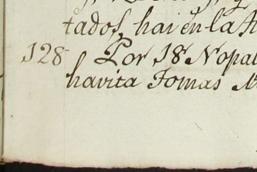 tados, hai en la
128 Por 18 Nopal
havita Tomas M